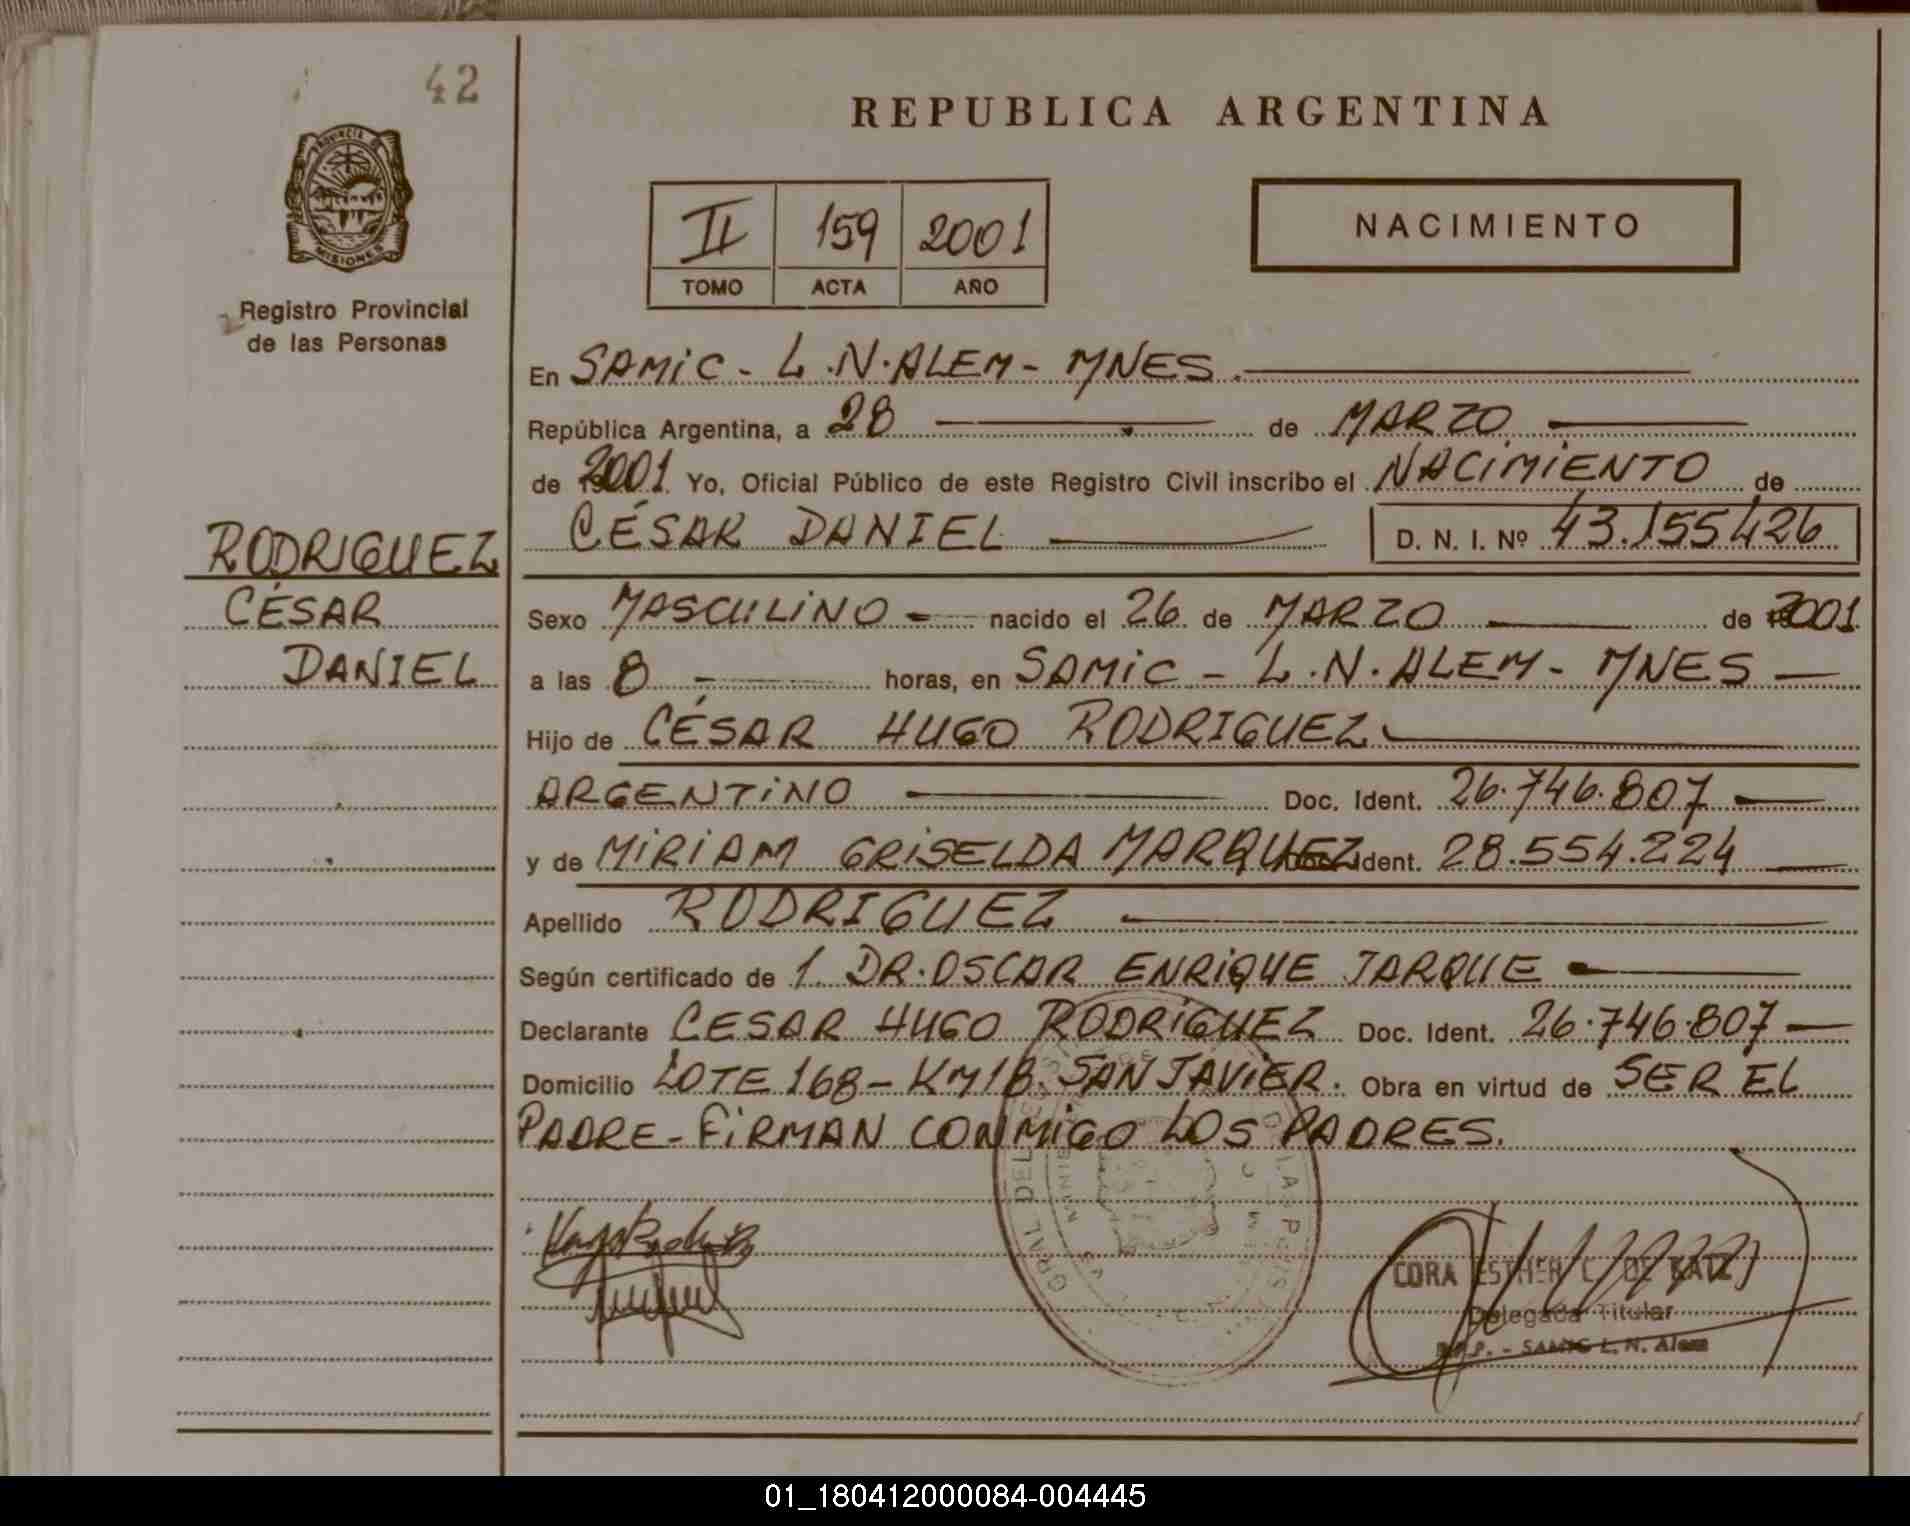 42
REPUBLICA ARGENTINA
PROVINCIA DE
MISIONES
II 159 2001
TOMO ACTA AÑO
NACIMIENTO
Registro Provincial
de las Personas
En SAMIC - L.N. ALEM - MNES.
República Argentina, a 28 de MARZO
de 2001 Yo, Oficial Público de este Registro Civil inscribo el NACIMIENTO de
CÉSAR DANIEL D. N. I. Nº 43.155426
RODRIGUEZ
CÉSAR
DANIEL
Sexo MASCULINO - nacido el 26 de MARZO de 2001
a las 8 - horas, en SAMIC - L.N. ALEM - MNES -
Hijo de CÉSAR HUGO RODRIGUEZ
ARGENTINO Doc. Ident. 26.746.807 -
y de MIRIAM GRISELDA MARQUEZ Doc. Ident. 28.554.224
Apellido RODRIGUEZ
Según certificado de 1. DR. OSCAR ENRIQUE JARQUE
Declarante CESAR HUGO RODRIGUEZ Doc. Ident. 26.746.807 -
Domicilio LOTE 168 - KM 18. SAN JAVIER. Obra en virtud de SER EL
PADRE - FIRMAN CONMIGO LOS PADRES.
CORA ESTHER C. DE KATZ
Delegada Titular
R.P.P. - SAMIC L. N. Alem
01_180412000084-004445